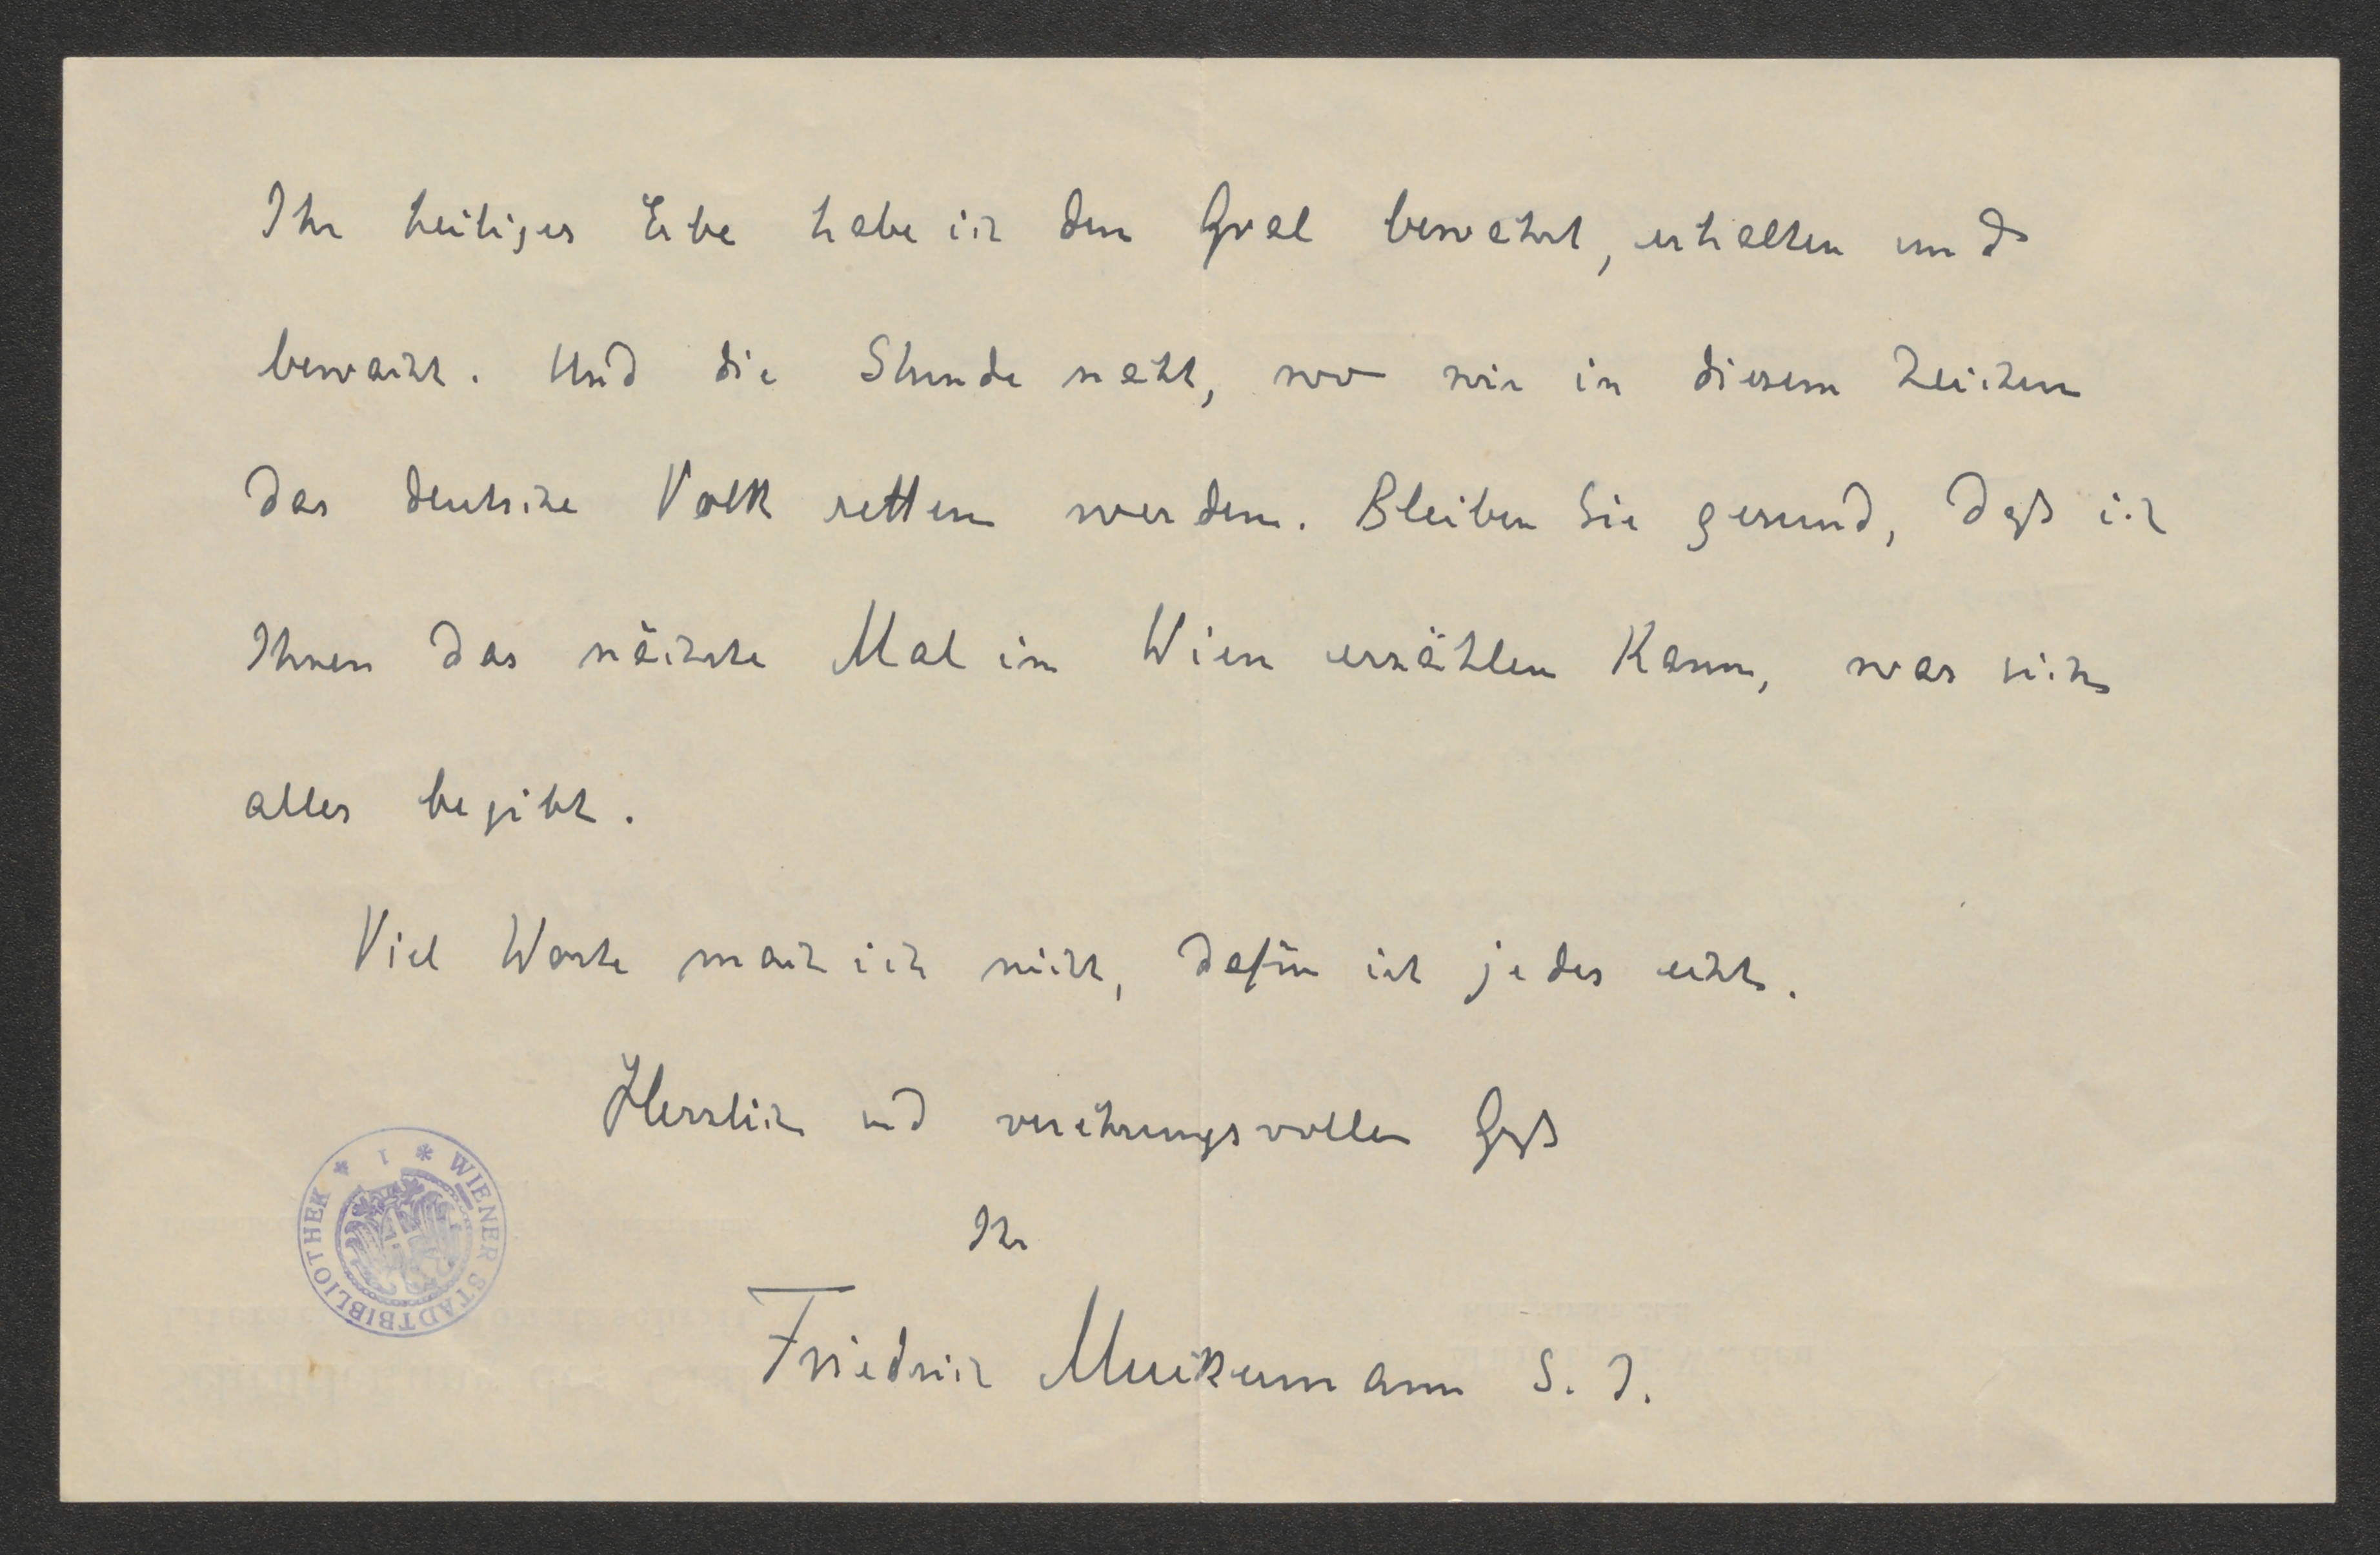 Ihr heiliges Erbe habe ich den Gral bewahrt, erhalten und
bewacht. Und die Stunde naht, wo wir in diesem Zeichen
das deutsche Volk retten werden. Bleiben Sie gesund, daß ich
Ihnen das nächste Mal in Wien erzählen kann, was sich
alles begibt.
Viel Worte mach ich nicht, dafür ist jedes echt.
Herzlich und verehrungsvollen Gruß
Ihr
Friedrich Muckermann S. J.
* I * WIENER STADTBIBLIOTHEK